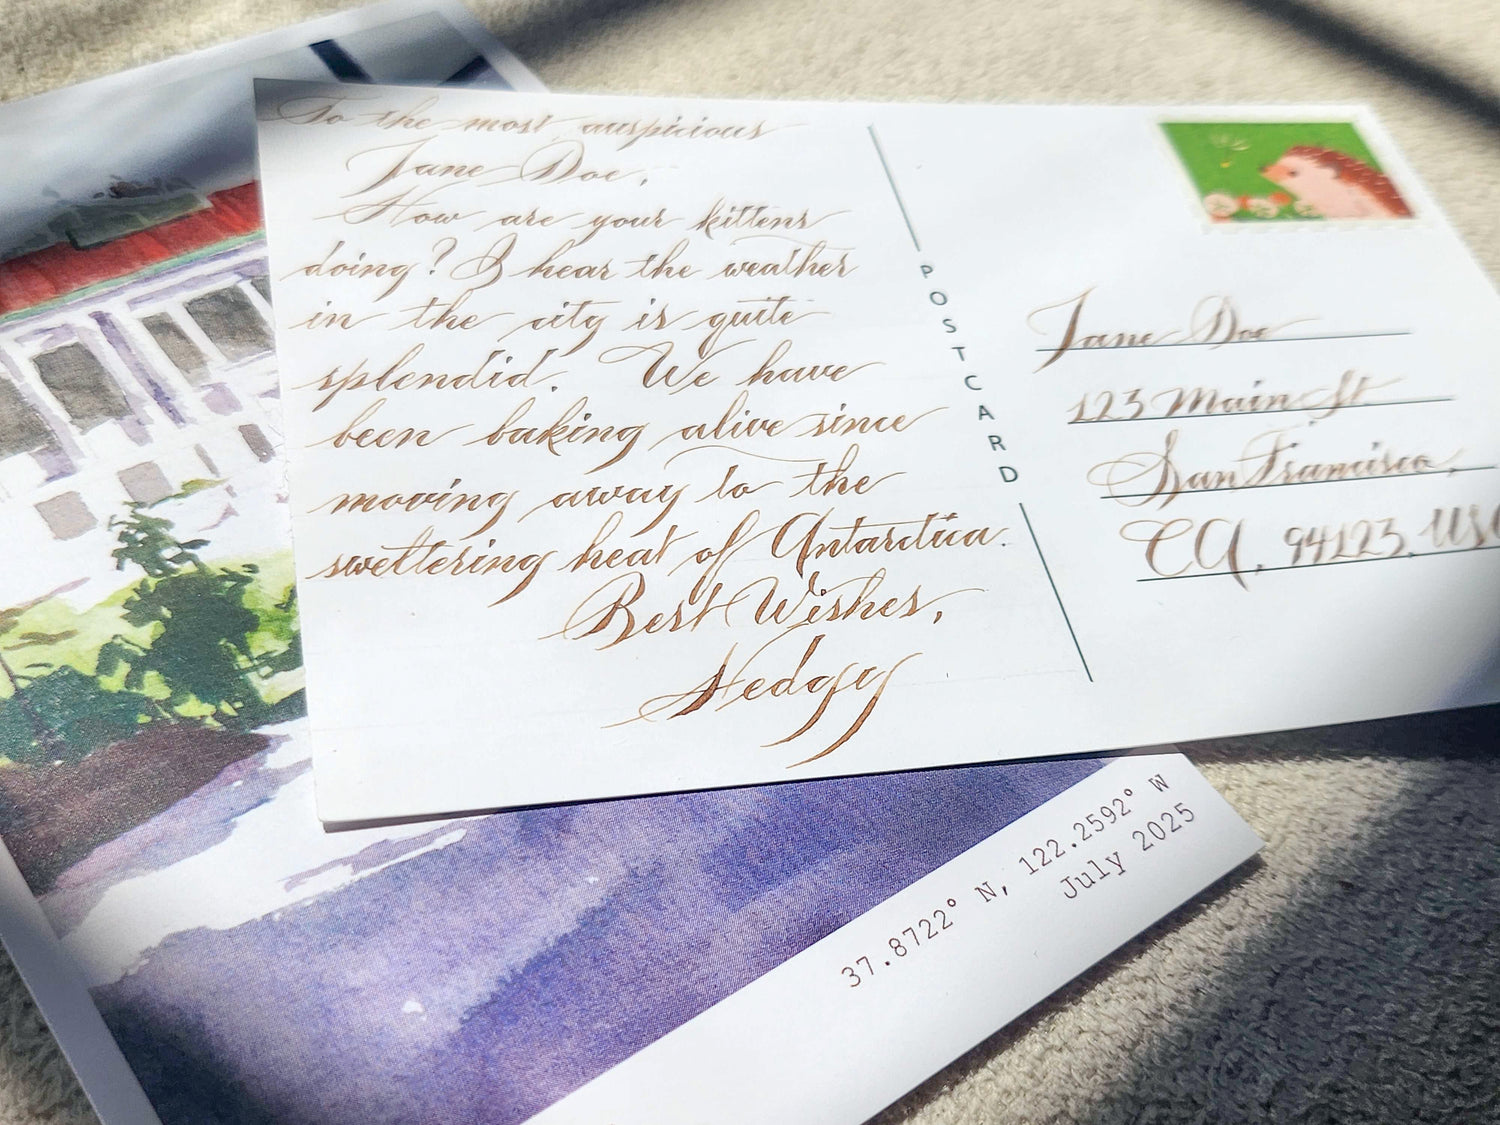 To the most auspicious
Jane Doe,
How are your kittens
doing? I hear the weather
in the city is quite
splendid. We have
been baking alive since
moving away to the
sweltering heat of Antarctica.
Best Wishes,
Hedgy
POSTCARD
Jane Doe
123 Main St
San Francisco,
CA, 94123, US
37.8722° N, 122.2592° W
July 2025